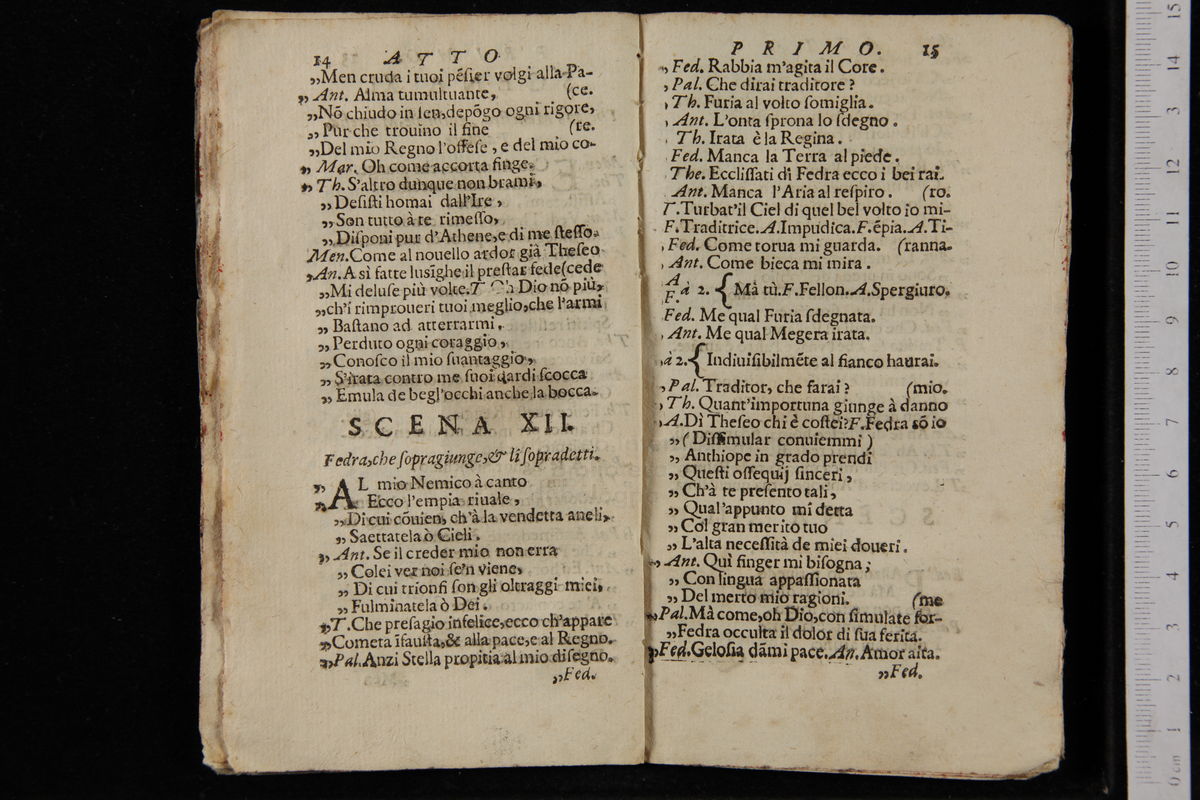 14 ATTO
„Men cruda i tuoi pẽſier volgi alla Pa-
„ Ant. Alma tumultuante, (ce.
„Nõ chiudo in ſen, depõgo ogni rigore,
„ Pur che trouino il fine (re.
„Del mio Regno l'offeſe, e del mio co-
„ Mar. Oh come accorta finge.
„ Th. S'altro dunque non brami,
„ Deſiſti homai dall'Ire,
„ Son tutto à te rimeſſo,
„ Diſponi pur d'Athene, e di me ſteſſo.
Men. Come al nouello ardor già Theſeo
„An. A sì fatte luſighe il preſtar fede (cede
„Mi deluſe più volte. T. Oh Dio nõ più,
„ch'i rimproueri tuoi meglio, che l'armi
„ Baſtano ad atterrarmi,
„ Perduto ogni coraggio,
„ Conoſco il mio ſuantaggio,
„ S'irata contro me ſuoi dardi ſcocca
„ Emula de begl'occhi anche la bocca.
SCENA XII.
Fedra, che ſopragiunge, & li ſopradetti.
„ AL mio Nemico à canto
„ Ecco l'empia riuale,
„Di cui cõuien, ch'à la vendetta aneli,
„ Saettatela ò Cieli.
„ Ant. Se il creder mio non erra
„ Colei ver noi ſe'n viene,
„ Di cui trionfi ſon gli oltraggi miei,
„ Fulminatela ò Dei.
„T. Che preſagio infelice, ecco ch'appare
„Cometa ĩfauſta, & alla pace, e al Regno.
„Pal. Anzi Stella propitia al mio diſegno.
„Fed.
PRIMO. 15
„ Fed. Rabbia m'agita il Core.
, Pal. Che dirai traditore?
, Th. Furia al volto ſomiglia.
, Ant. L'onta ſprona lo ſdegno.
, Th. Irata è la Regina.
Fed. Manca la Terra al piede.
The. Eccliſſati di Fedra ecco i bei rai.
Ant. Manca l'Aria al reſpiro. (ro.
T. Turbat'il Ciel di quel bel volto io mi-
F. Traditrice. A. Impudica. F. ẽpia. A. Ti-
, Fed. Come torua mi guarda. (ranna.
, Ant. Come bieca mi mira.
A F. à 2. { Mà tù. F. Fellon. A. Spergiuro.
Fed. Me qual Furia ſdegnata.
, Ant. Me qual Megera irata.
,à 2. { Indiuiſibilmẽte al fianco haurai.
, Pal. Traditor, che farai? (mio.
, Th. Quant'importuna giunge à danno
,A. Dì Theſeo chi è coſtei? F. Fedra sõ io
„ (Diſſimular conuiemmi)
„ Anthiope in grado prendi
„ Queſti oſſequij ſinceri,
„ Ch'à te preſento tali,
„ Qual'appunto mi detta
„ Col gran merito tuo
„ L'alta neceſſità de miei doueri.
„ Ant. Quì finger mi biſogna;
„ Con lingua appaſſionata
„ Del merto mio ragioni. (me
„Pal. Mà come, oh Dio, con ſimulate for-
„Fedra occulta il dolor di ſua ferita.
„Fed. Geloſia dãmi pace. An. Amor aita.
„Fed.
15
14
13
12
11
10
9
8
7
6
5
4
3
2
1
0 cm